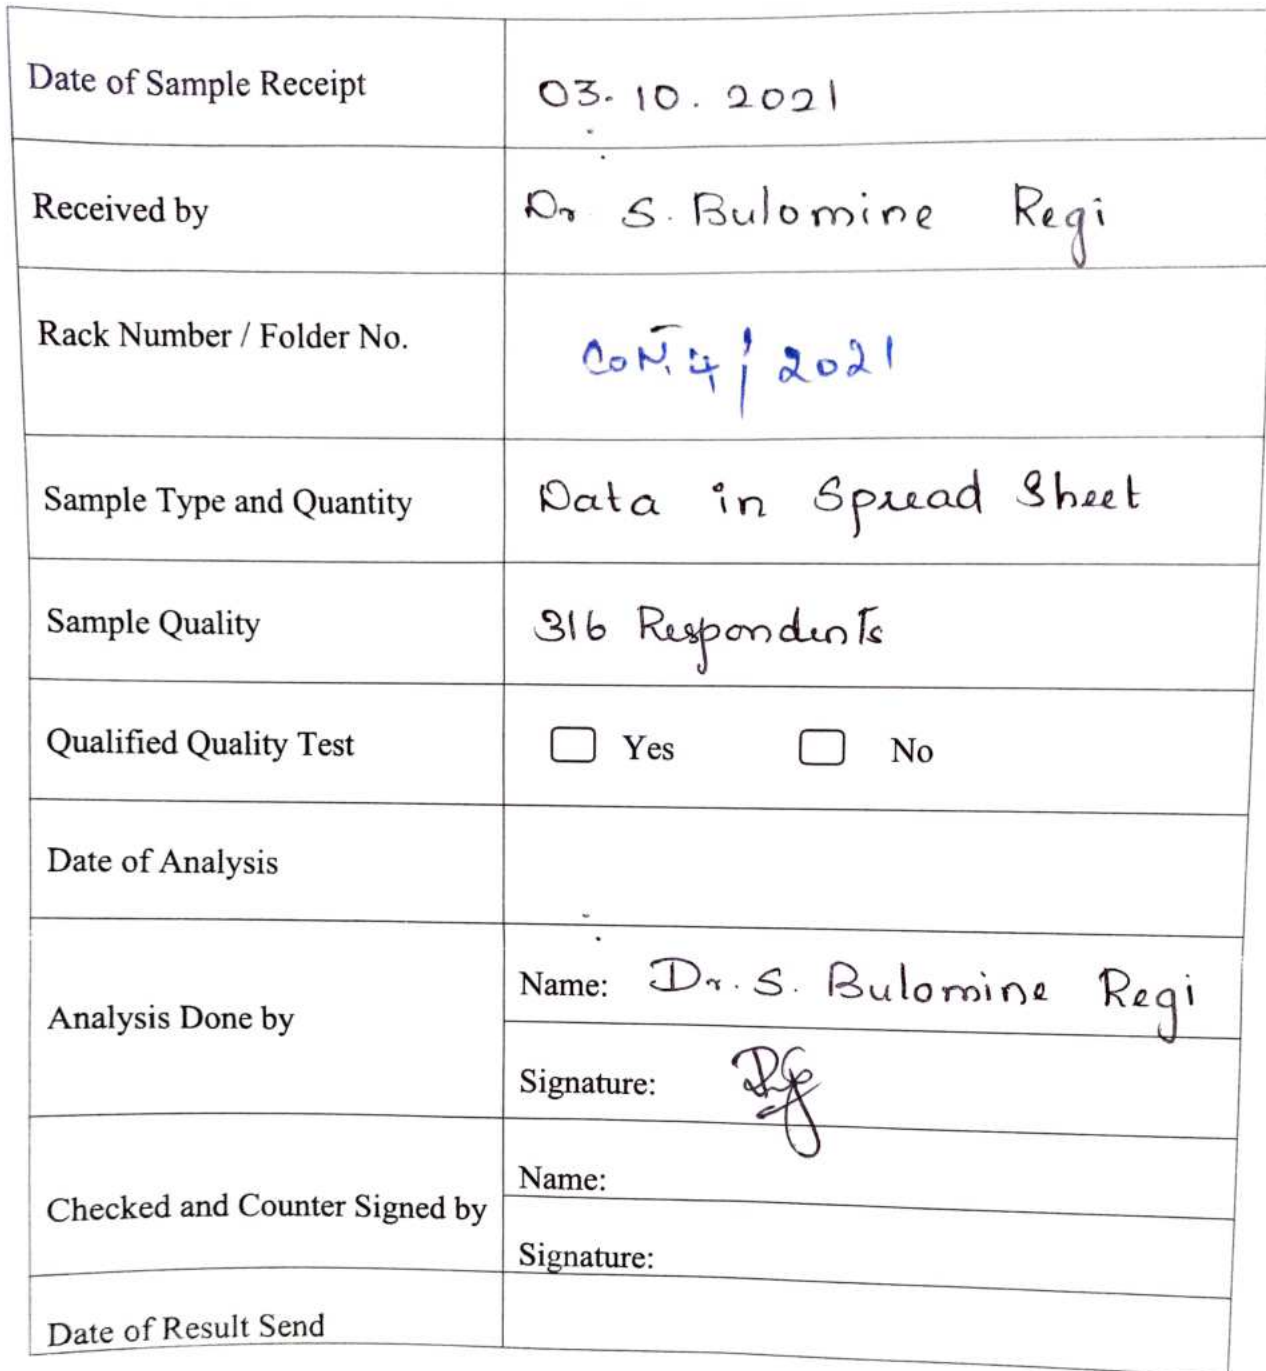 Date of Sample Receipt 03.10.2021
Received by Dr S. Bulomine Regi
Rack Number / Folder No. CoN.4/2021
Sample Type and Quantity Data in Spread Sheet
Sample Quality 316 Respondents
Qualified Quality Test Yes No
Date of Analysis
Name: Dr. S. Bulomine Regi
Analysis Done by
Signature:
Name:
Checked and Counter Signed by
Signature:
Date of Result Send